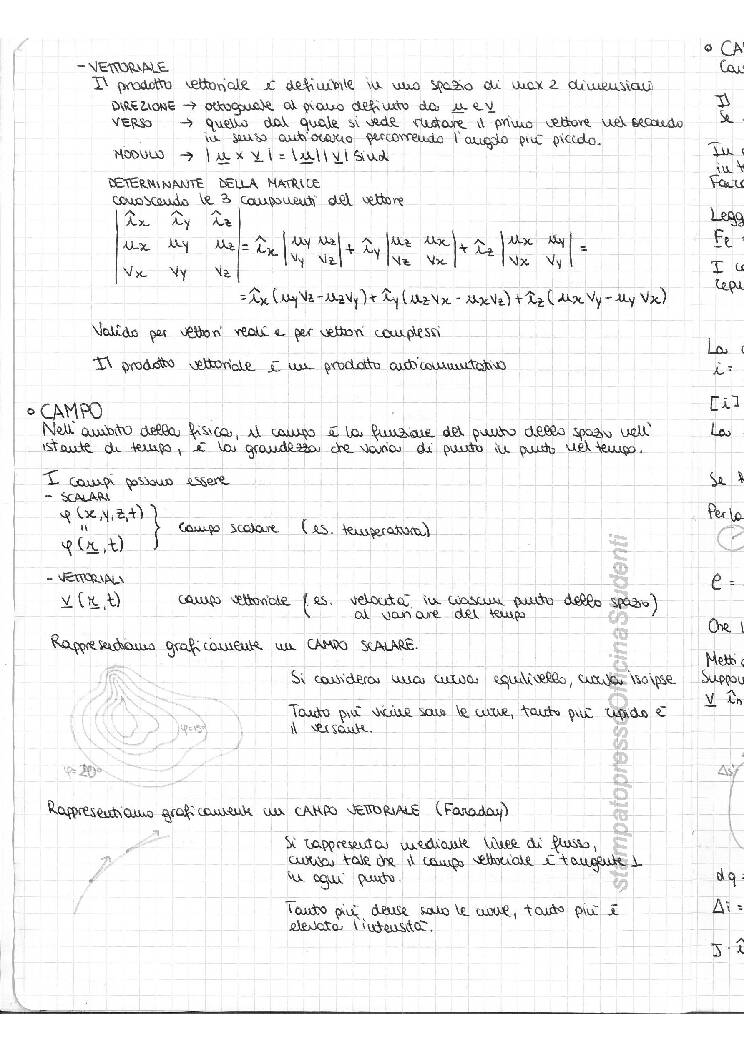 - VETTORIALE
Il prodotto vettoriale è definibile in uno spazio di max 2 dimensioni
DIREZIONE → ortogonale al piano definito da u e v
VERSO → quello dal quale si vede ruotare il primo vettore nel secondo
in senso antiorario percorrendo l'angolo più piccolo.
MODULO → |u × v| = |u||v| sinα
DETERMINANTE DELLA MATRICE
conoscendo le 3 componenti del vettore
|îx îy îz|
|ux uy uz| = îx |uy uz| + îy |uz ux| + îz |ux uy| =
|vx vy vz| |vy vz| |vz vx| |vx vy|
= îx (uyvz - uzvy) + îy (uzvx - uxvz) + îz (uxvy - uyvx)
Valido per vettori reali e per vettori complessi
Il prodotto vettoriale è un prodotto anticommutativo
° CAMPO
Nell'ambito della fisica, il campo è la funzione del punto dello spazio nell'
istante di tempo, è la grandezza che varia di punto in punto nel tempo.
I campi possono essere
- SCALARI
φ(x,y,z,t)
" } campo scalare (es. temperatura)
φ(r,t)
- VETTORIALI
v(r,t) campo vettoriale (es. velocità in ciascun punto dello spazio)
al variare del tempo
Rappresentiamo graficamente un CAMPO SCALARE.
Si considera una curva equilivello, curva isoipse
Tanto più vicine sono le curve, tanto più ripido è
il versante.
φ=15°
φ=20°
Rappresentiamo graficamente un CAMPO VETTORIALE (Faraday)
Si rappresenta mediante linee di flusso,
curva tale che il campo vettoriale è tangente ⊥
in ogni punto.
Tanto più dense sono le curve, tanto più è
elevata l'intensità.
stampatopressoOfficinaStudenti
° CA
Il
Se
In
in t
Legg
Fe
I c
La
i =
[i]
La
Se
Per la
e =
Che
Metti
Suppo
v în
Δs
dq =
Δi =
J · î